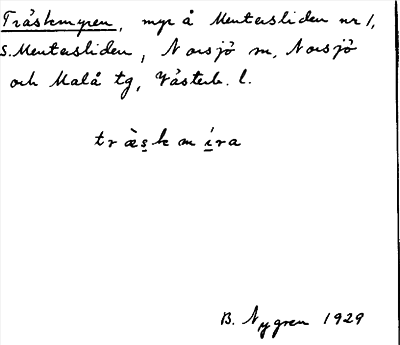 Träskmyren, myr å Mentersliden nr 1,
S. Mentersliden, Norsjö sn, Norsjö
och Malå tg, Västerb. l.
træ̀s̲k m í̲ra
B. Nygren 1929